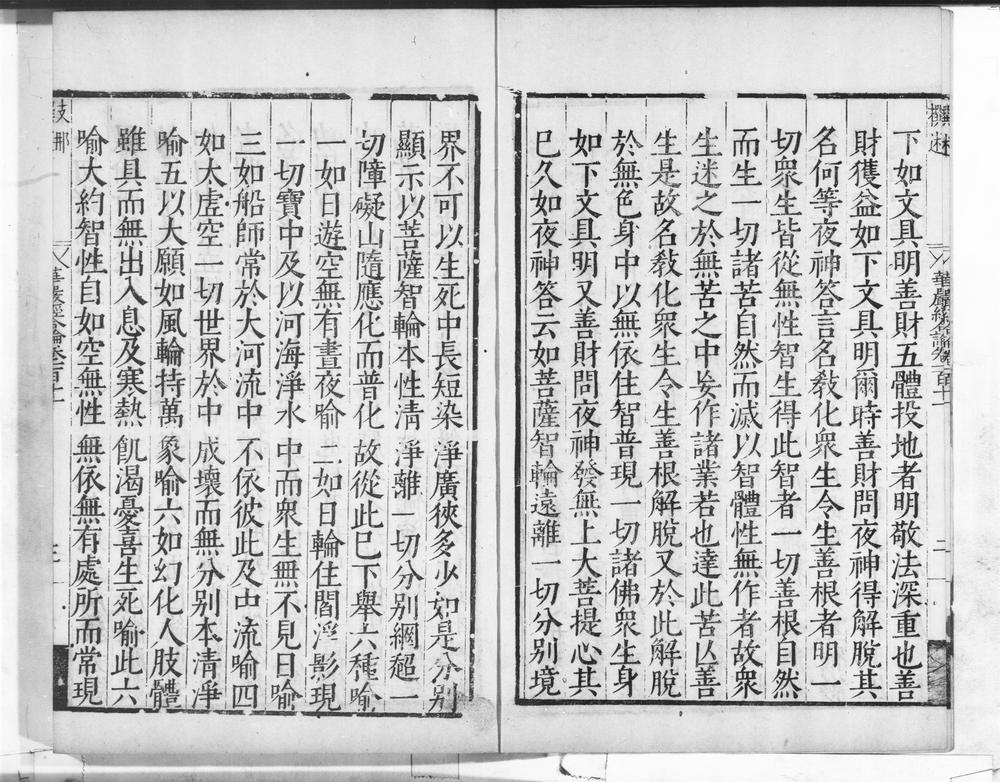 下如文具明善財五體投地者明敬法深重也善
財獲益如下文具明爾時善財問夜神得解脫其
名何等夜神答言名教化衆生令生善根者明一
切衆生皆從無性智生得此智者一切善根自然
而生一切諸苦自然而滅以智體性無作者故衆
生迷之於無苦之中妄作諸業若也達此苦以善
生是故名教化衆生令生善根解脫又於此解脫
於無色身中以無依住智普現一切諸佛衆生身
如下文具明又善財問夜神發無上大菩提心其
巳久如夜神答云如菩薩智輪遠離一切分別境
界不可以生死中長短染淨廣狹多少如是分別
顯示以菩薩智輪本性清淨離一切分別網超一
切障礙山隨應化而普化故從此巳下舉六種喻
一如日遊空無有晝夜喻二如日輪住閻浮影現
一切寶中及以河海淨水中而衆生無不見日喻
三如船師常於大河流中不依彼此及中流喻四
如太虛空一切世界於中成壞而無分別本清淨
喻五以大願如風輪持萬象喻六如幻化人肢體
雖具而無出入息及寒熱飢渴憂喜生死喻此六
喻大約智性自如空無性無依無有處所而常現
華嚴經合論卷一百十一
三
華嚴經合論卷一百十一
二